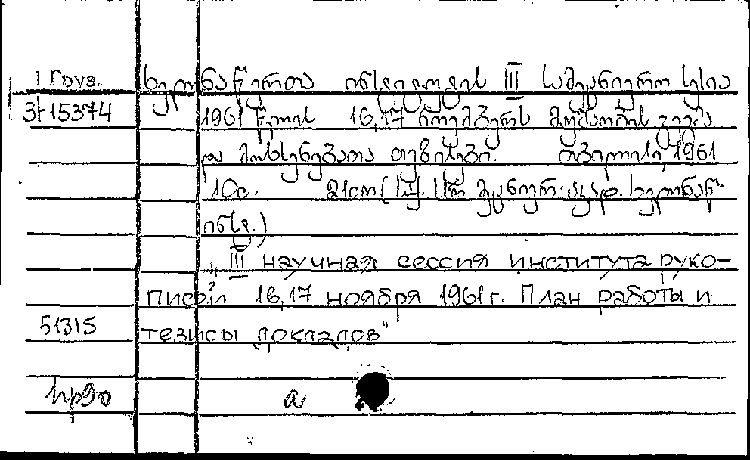 1 Груз. ხელნაწერთა ინსტიტუტის III სამეცნიერო სესია
3-15374 1961 წლის 16,17 ნოემბერს მუშაობის გეგმა
და მოხსენებათა თეზისები. თბილისი, 1961
10გ. 21სმ (საქ. სსრ მეცნიერ. აკად. ხელნაწ.
ინსტ.)
„III научная сессия института руко-
писей 16,17 ноября 1961г. План работы и
51315 тезисы докладов"
а